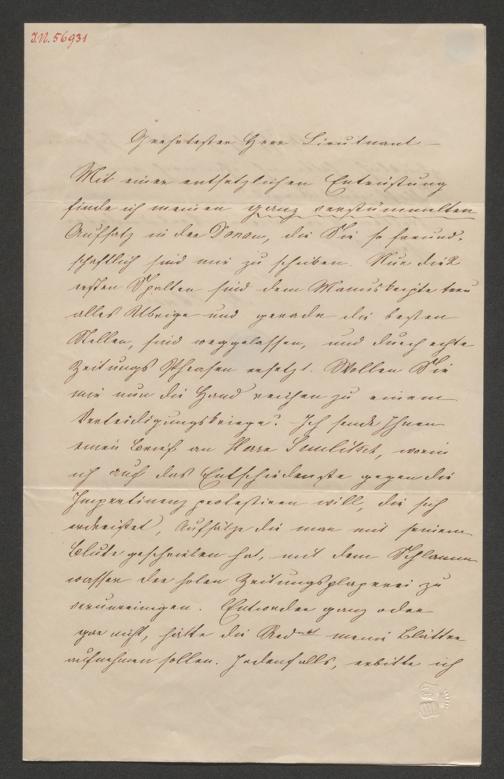 I.N. 56931
Geehrtester Herr Lieutnant –
Mit einer entsetzlichen Entrüstung
finde ich meinen ganz verstümmelten
Aufsatz in der Donau, die Sie so freund-
schaftlich sind mir zu schicken. Nur drei
ersten Spalten sind dem Manuskripte treu
alles Übrige und gerade die besten
Stellen, sind weggelassen, und durch echte
Zeitungs Phrasen ersetzt. Wollen Sie
mir nun die Hand reichen zu einem
Verteidigungskriege? Ich sende Ihnen
einen Brief an Herr, worin
ich auf das Entschiedenste gegen die
Impertinenz protestieren will, die sich
erdreistet, Aufsätze die man mit seinem
Blute geschrieben hat, mit dem Schlamm
wasser der holen Zeitungsplaperei zu
verunreinigen. Entweder ganz oder
gar nicht, hätte die Redact meine Blätter
aufnehmen sollen. Jedenfalls, erbitte ich